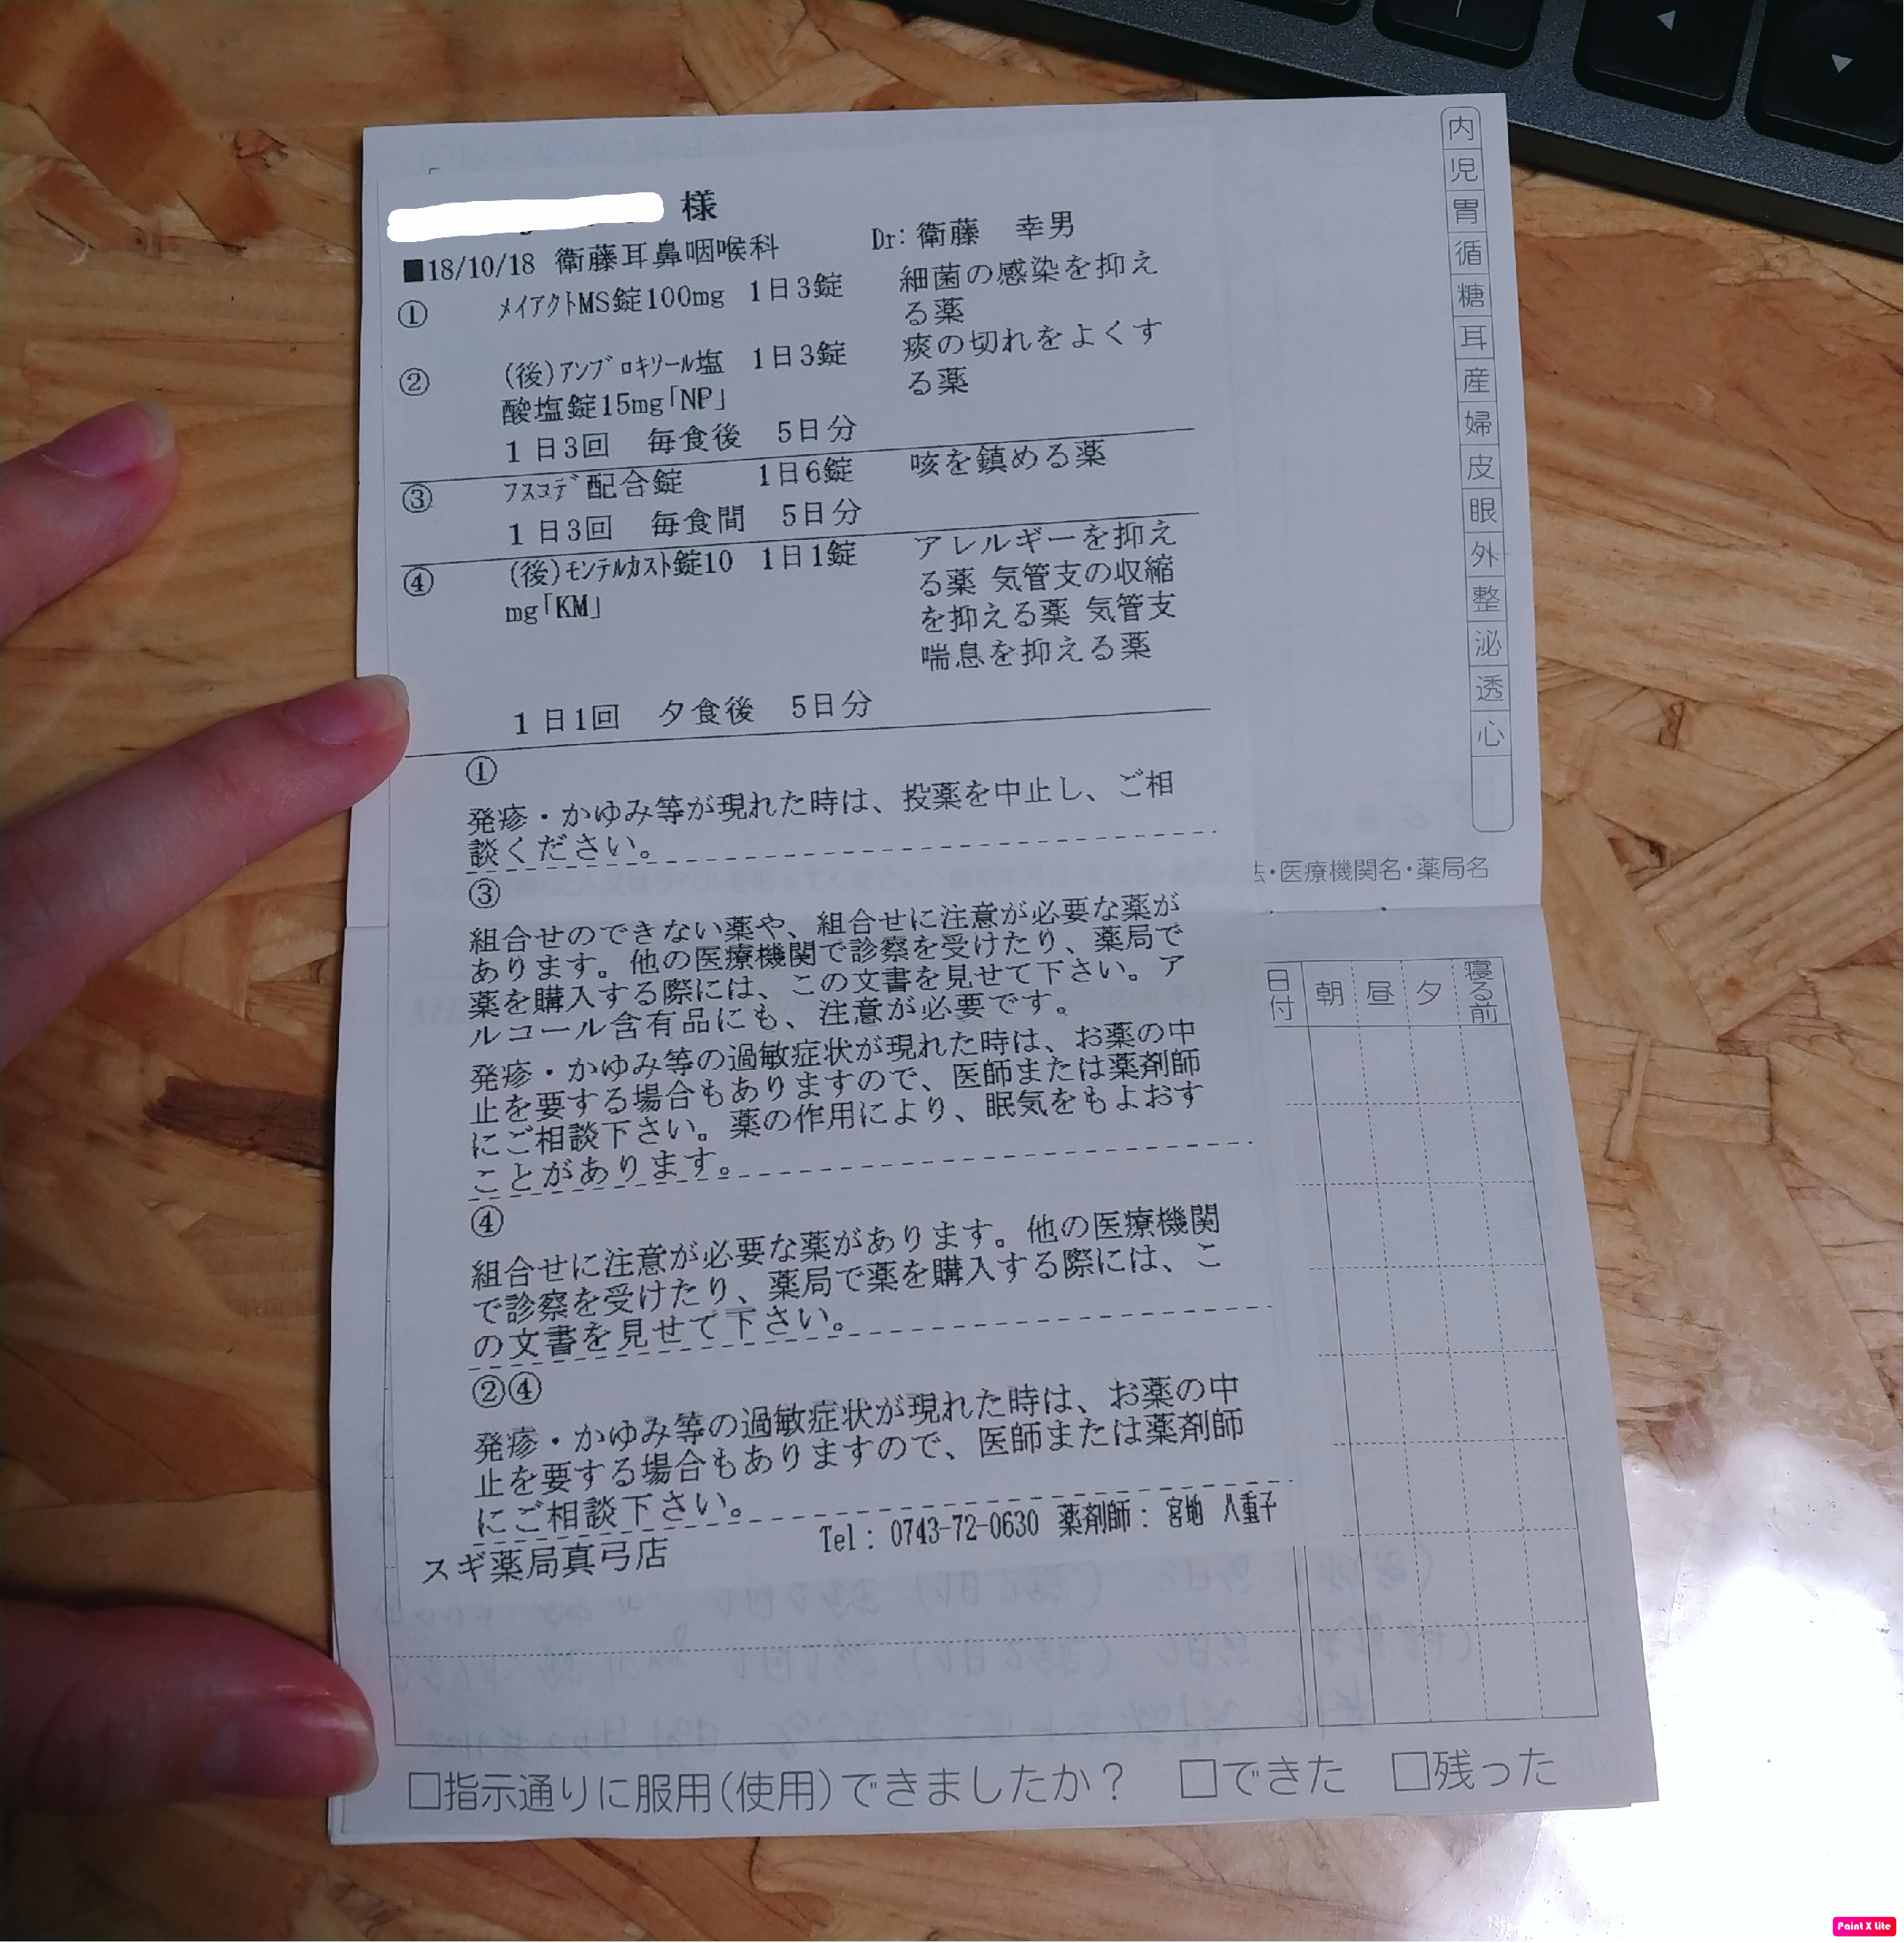 様
■18/10/18 衛藤耳鼻咽喉科 Dr: 衛藤 幸男
① ﾒｲｱｸﾄMS錠100mg 1日3錠 細菌の感染を抑え
る薬
② (後)ｱﾝﾌﾞﾛｷｿｰﾙ塩 1日3錠 痰の切れをよくす
酸塩錠15mg｢NP｣ る薬
1日3回 毎食後 5日分
③ ﾌｽｺﾃﾞ配合錠 1日6錠 咳を鎮める薬
1日3回 毎食間 5日分
④ (後)ﾓﾝﾃﾙｶｽﾄ錠10 1日1錠 アレルギーを抑え
mg｢KM｣ る薬 気管支の収縮
を抑える薬 気管支
喘息を抑える薬
1日1回 夕食後 5日分
①
発疹・かゆみ等が現れた時は、投薬を中止し、ご相
談ください。
③
組合せのできない薬や、組合せに注意が必要な薬が
あります。他の医療機関で診察を受けたり、薬局で
薬を購入する際には、この文書を見せて下さい。ア
ルコール含有品にも、注意が必要です。
発疹・かゆみ等の過敏症状が現れた時は、お薬の中
止を要する場合もありますので、医師または薬剤師
にご相談下さい。薬の作用により、眠気をもよおす
ことがあります。
④
組合せに注意が必要な薬があります。他の医療機関
で診察を受けたり、薬局で薬を購入する際には、こ
の文書を見せて下さい。
②④
発疹・かゆみ等の過敏症状が現れた時は、お薬の中
止を要する場合もありますので、医師または薬剤師
にご相談下さい。
Tel: 0743-72-0630 薬剤師: 宮地 八重子
スギ薬局真弓店
内
児
胃
循
糖
耳
産
婦
皮
眼
外
整
泌
透
心
・医療機関名・薬局名
日付 朝 昼 夕 寝る前
□指示通りに服用(使用)できましたか? □できた □残った
Paint X Lite